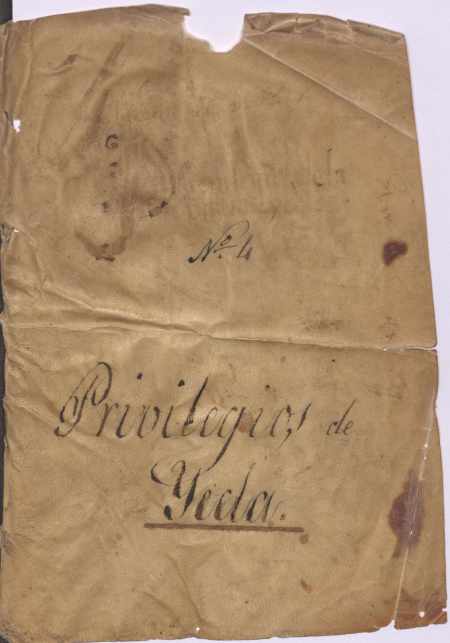 Nº 4
Privilegios de
Yecla.